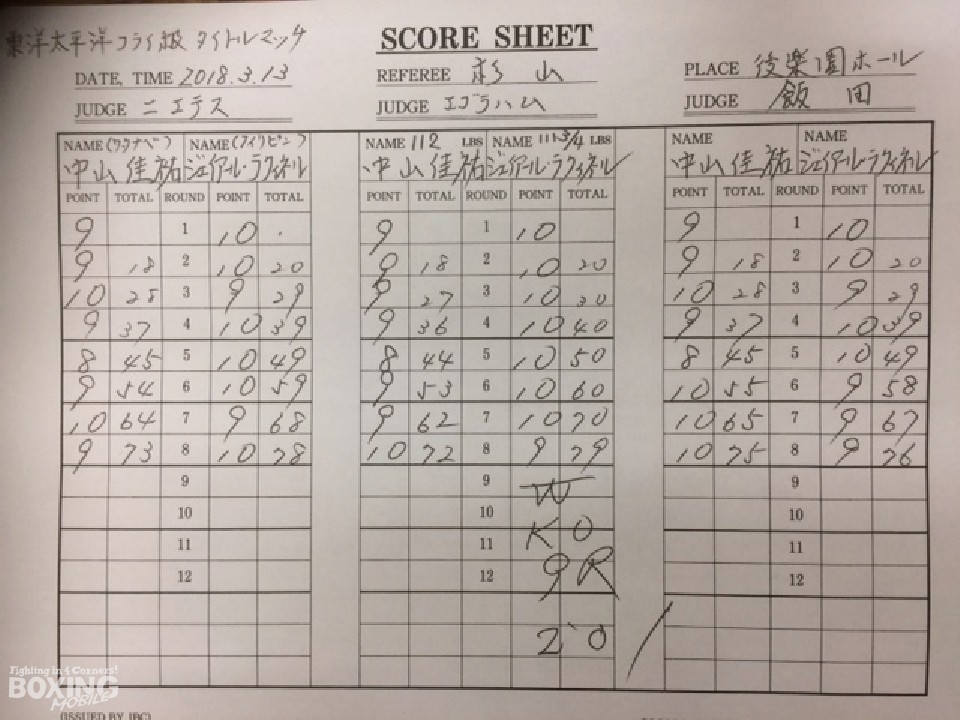 東洋太平洋フライ級 タイトルマッチ
SCORE SHEET
DATE, TIME 2018.3.13 REFEREE 杉山 PLACE 後楽園ホール
JUDGE ニエテス JUDGE エゴラハム JUDGE 飯田
NAME (ワタナベ) NAME (フィリピン) NAME 112 LBS NAME 111 3/4 LBS NAME NAME
中山佳祐 ジェイアール・ラクィネル 中山佳祐 ジェイアール・ラクィネル 中山佳祐 ジェイアール・ラクィネル
POINT TOTAL ROUND POINT TOTAL POINT TOTAL ROUND POINT TOTAL POINT TOTAL ROUND POINT TOTAL
9 1 10 9 1 10 9 1 10
9 18 2 10 20 9 18 2 10 20 9 18 2 10 20
10 28 3 9 29 9 27 3 10 30 10 28 3 9 29
9 37 4 10 39 9 36 4 10 40 9 37 4 10 39
8 45 5 10 49 8 44 5 10 50 8 45 5 10 49
9 54 6 10 59 9 53 6 10 60 10 55 6 9 58
10 64 7 9 68 9 62 7 10 70 10 65 7 9 67
9 73 8 10 78 10 72 8 9 79 10 75 8 9 76
9 9 W 9
10 10 10
11 11 KO 11
12 12 9R 12
2'0
Fighting in 4 Corners!
BOXING
MOBILE
(ISSUED BY JBC)